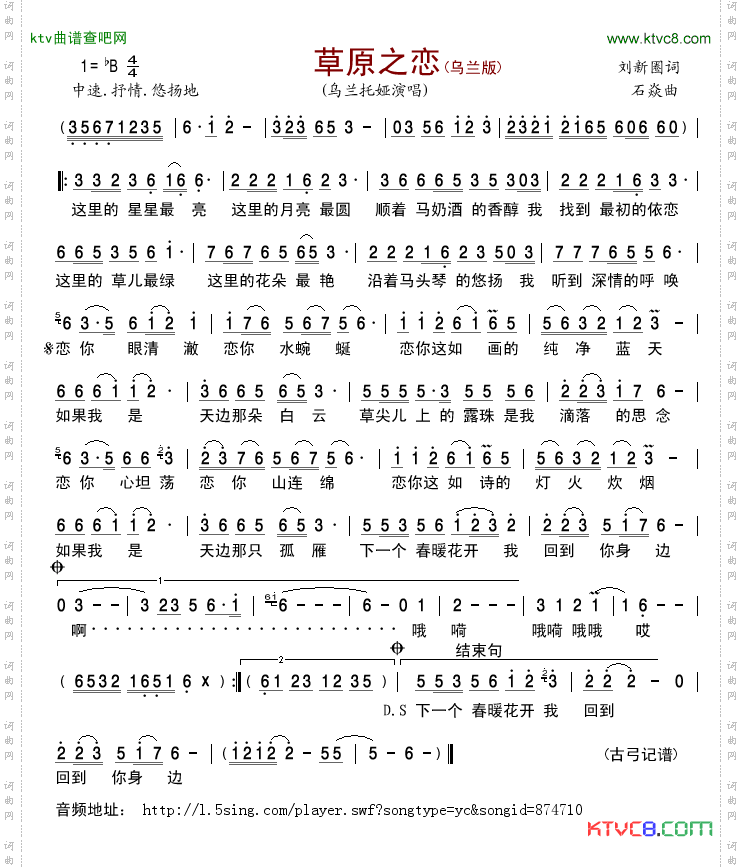 ktv曲谱查吧网
www.ktvc8.com
草原之恋(乌兰版)
1=♭B 4/4
刘新圈词
中速.抒情.悠扬地
(乌兰托娅演唱)
石焱曲
(35671235 | 6·i 2 - | 323 65 3 - | 03 56 12 3 | 2321 2165 606 60)
3 3 2 3 6 16 6· | 2 2 2 1 6 2 3· | 3 6 6 6 5 3 5 303 | 2 2 2 1 6 3 3·
这里的 星星最 亮 这里的月亮 最圆 顺着 马奶酒 的香醇 我 找到 最初的依恋
6 6 5 3 5 6 i· | 7 6 7 6 5 65 3· | 2 2 2 2 16 2 3 503 | 7 7 7 6 5 7 6·
这里的 草儿最绿 这里的花朵 最 艳 沿着马头琴 的悠扬 我 听到 深情的呼 唤
5 6 3·5 6 i2 i | i 76 567 56· | i i 2 6i 6 5 | 5632 12 3 -
恋你 眼清 澈 恋你 水蜿 蜒 恋你这如 画的 纯 净 蓝 天
6 6 6i i2· | 3 6 6 5 65 3· | 5 5 5·3 5 5 56· | 2 23 i7 6 -
如果我 是 天边那朵 白 云 草尖儿 上 的 露珠 是我 滴落 的思 念
5 6 3·5 6 6 23 | 2376 567 56· | i i 2 6i 6 5 | 5632 12 3 -
恋你 心坦 荡 恋 你 山连 绵 恋你这 如 诗的 灯 火 炊 烟
6 6 6i i2· | 3 6 6 5 65 3· | 5 5 3 5 6 123 2 | 2 23 5 i7 6 -
如果我 是 天边那只 孤 雁 下一个 春暖花开 我 回到 你身 边
1
0 3 - - | 3 23 5 6·i | 6i 6 - - - | 6 - 0 1 | 2 - - - | 3 1 2 1 | 1 6 - -
啊·································· 哦 嗬 哦嗬 哦哦 哎
2
结束句
( 6532 1651 6 X ) :|| ( 61 23 12 35 ) | 5 5 3 5 6 i 2 i 23 | 2 2 2 2 - 0
D.S 下一个 春暖花开 我 回到
2 23 5 i7 6 - | (i2i2 2 - 55 | 5 - - -)
(古弓记谱)
回到 你身 边
音频地址: http://l.5sing.com/player.swf?songtype=yc&songid=874710
KTVC8.COM